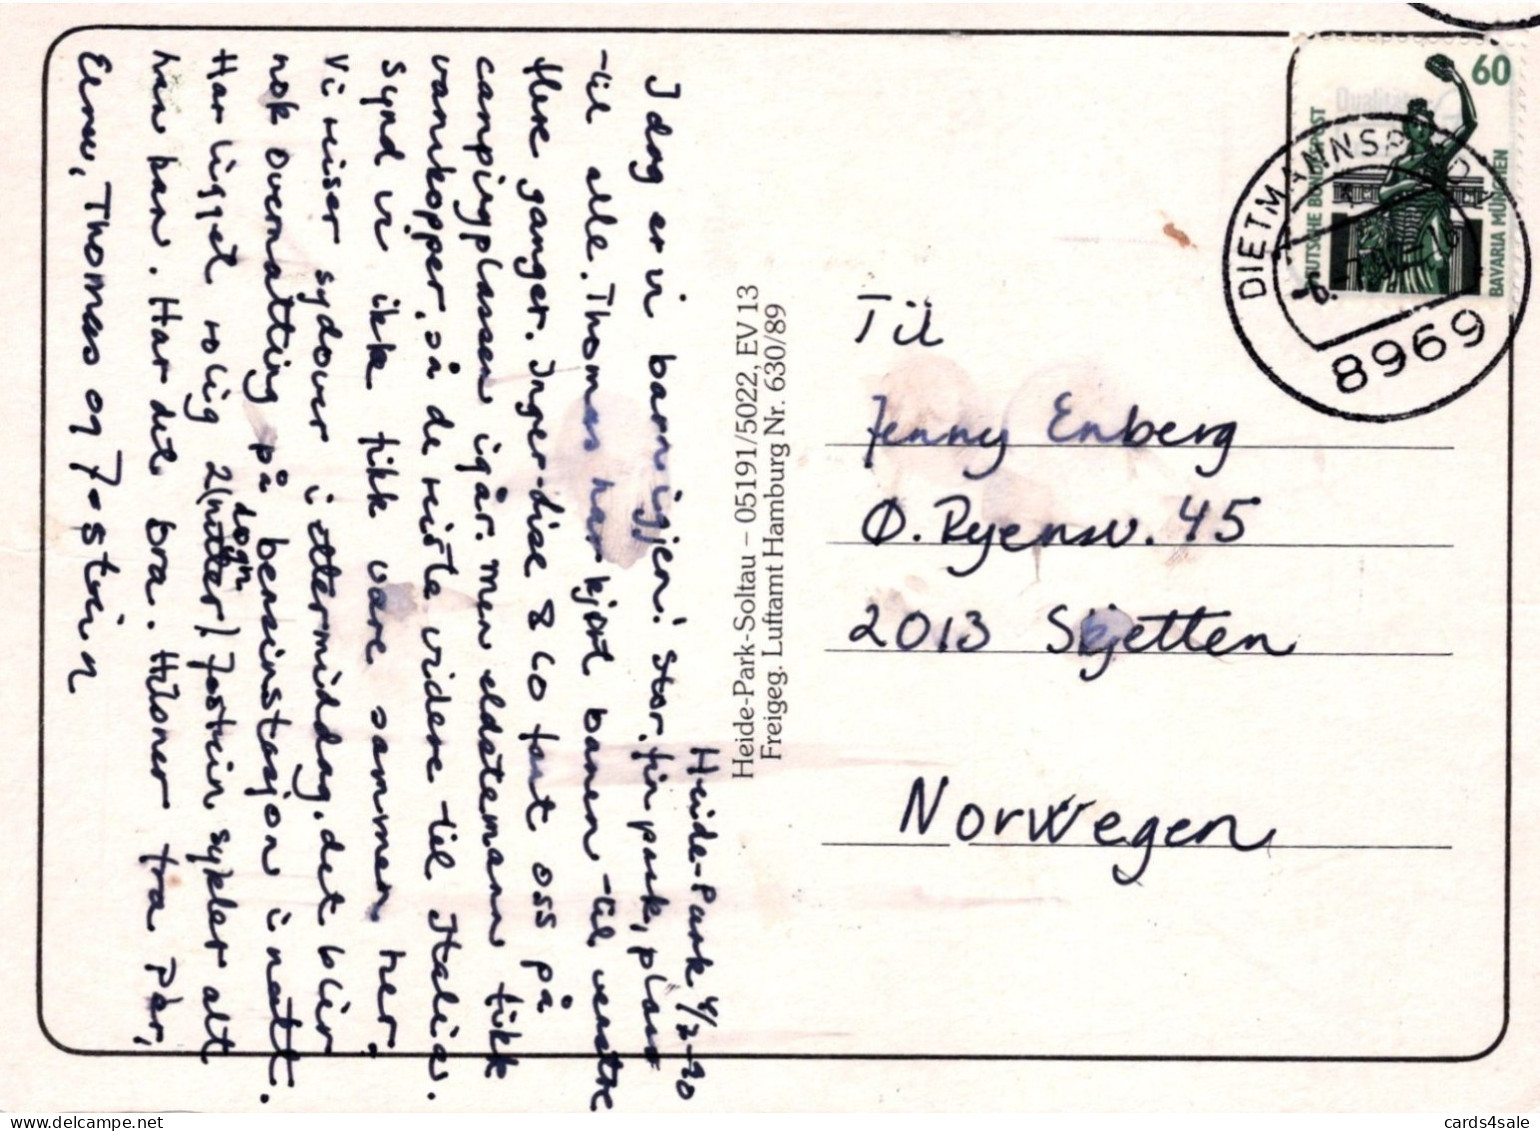 Heide-Park 4/7-90
I dag er vi barn igjen! Stor, fin park, plass
til alle. Thomas har kjørt banen -til venstre
flere ganger. Inger-Lise & Co fant oss på
campingplassen igår. Men eldstemann fikk
vannkopper, så de reiste videre til Italia.
Synd vi ikke fikk være sammen her.
Vi reiser sydover i ettermiddag, det blir
nok overnatting på bensinstasjon i natt.
Har ligget rolig 2 døgn (netter) Jostein sykler alt
han kan. Har det bra. Hilsner fra Per,
Thomas og Jostein
Heide-Park-Soltau – 05191/5022, EV 13
Freigeg. Luftamt Hamburg Nr. 630/89
60
DEUTSCHE BUNDESPOST
BAVARIA MÜNCHEN
DIETMANNSRIED
8969
Til
Jenny Enberg
Ø. Ryensv. 45
2013 Skjetten
Norwegen
cards4sale